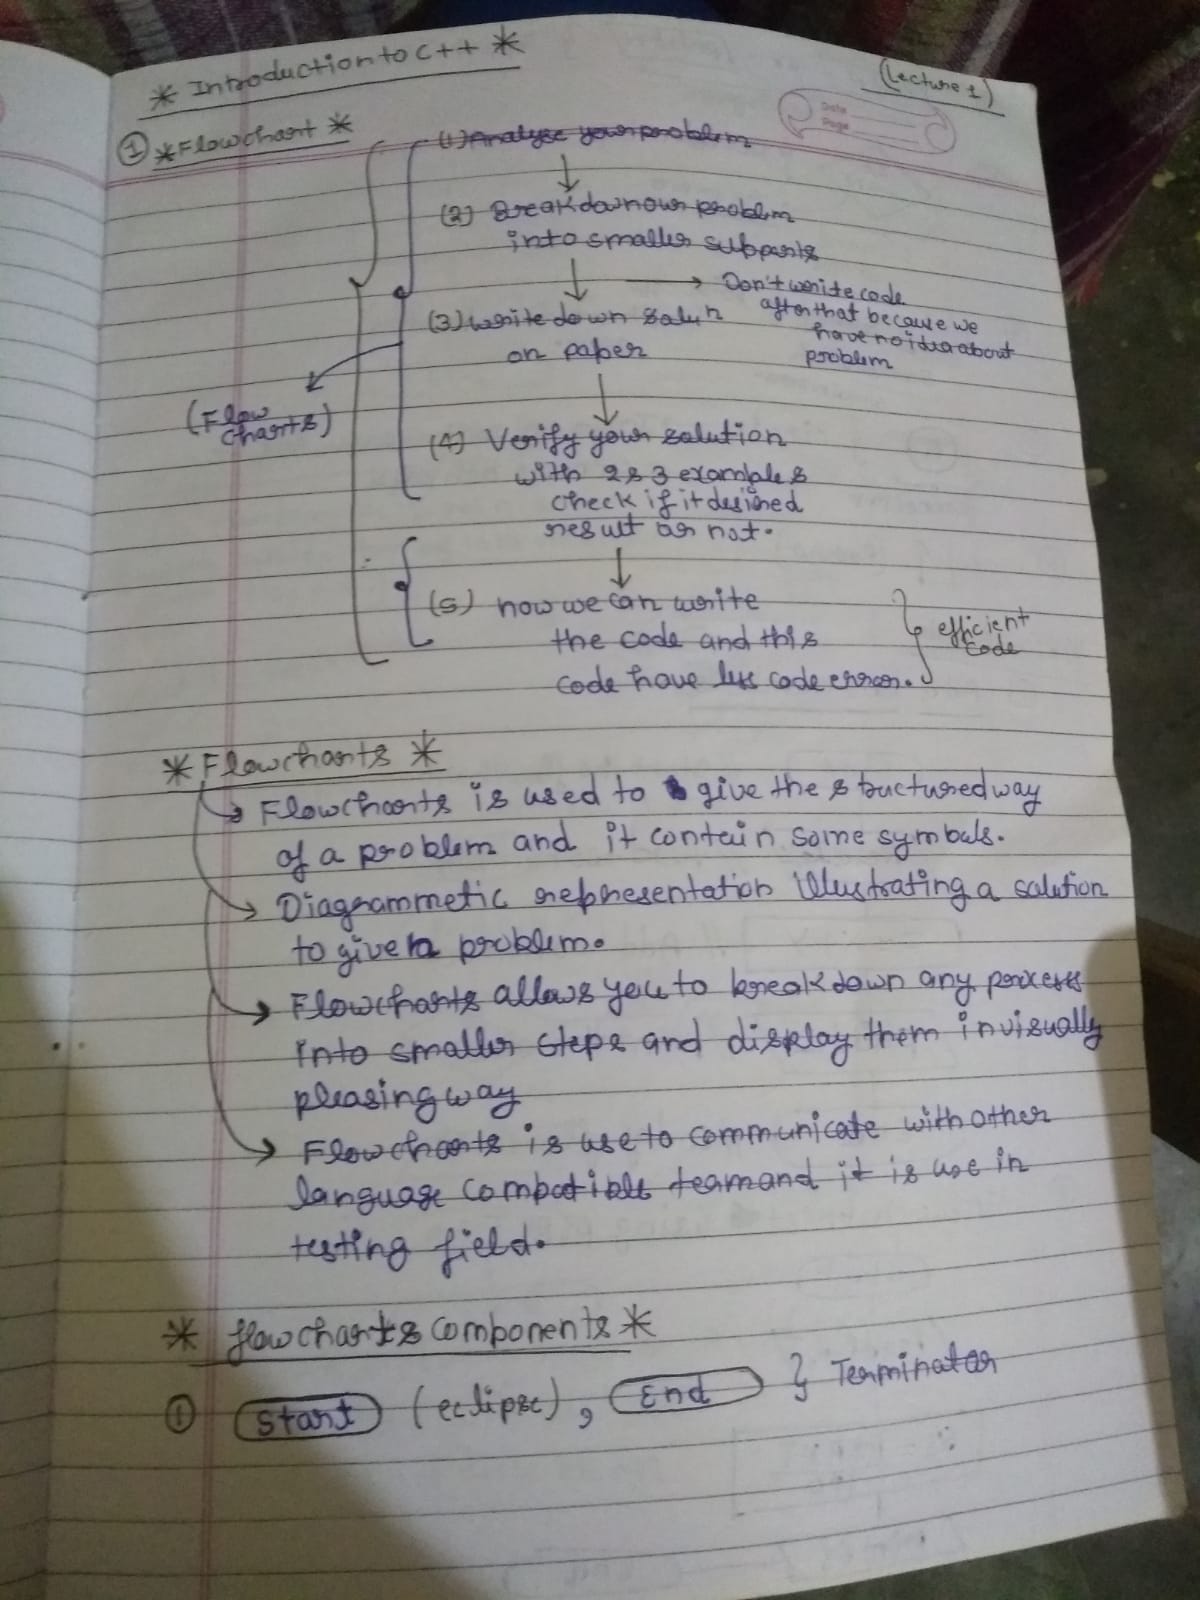 * Introduction to C++ *
(Lecture 1)
Date
Page
① * Flowchart *
(1) Analyse your problem
(2) Breakdown our problem
into smaller subparts
→ Don't write code
after that because we
have no idea about
problem
(3) write down solun
on paper
(Flow
charts)
(4) Verify your solution
with 2 & 3 examples
check if it desired
result or not.
(5) now we can write
the code and this
code have less code error.
efficient
code
* Flowcharts *
→ Flowcharts is used to give the structured way
of a problem and it contain some symbols.
→ Diagrammetic representation illustrating a solution
to given problem.
→ Flowcharts allows you to breakdown any process
into smaller steps and display them in visually
pleasing way
→ Flowcharts is use to communicate with other
language compatible team and it is use in
testing field.
* flowcharts components *
① Start (eclipse), End } Terminator